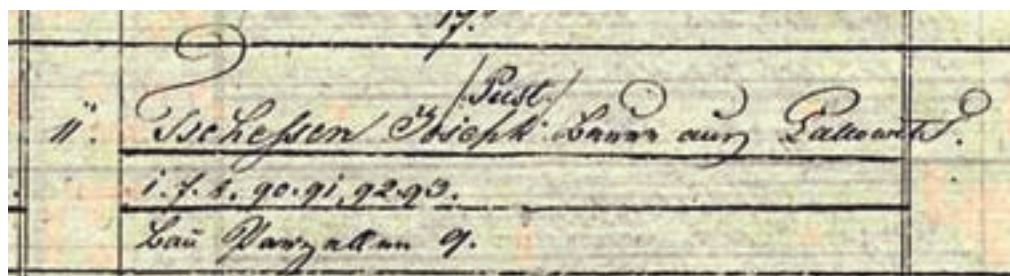 17.
11. Tscheßen /Pust./ Joseph Bauer aus Pallowitz.
i. f. 1. 90. 91, 92. 93.
Bau Parzellen 9.